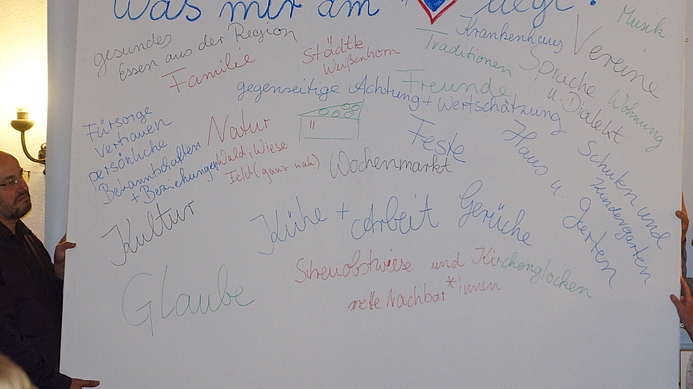 Was mir am liegt!
gesundes
Essen aus der Region
Familie
Städtle
Weißenhorn
Krankenhaus
Traditionen
Vereine
Musik
Sprache
u. Dialekt
Wohnung
gegenseitige Achtung + Wertschätzung
Freunde
Fürsorge
Vertrauen
persönliche
Bekanntschaften
+ Beziehungen
Natur
Wald, Wiese
Feld (ganz nah)
Wochenmarkt
Feste
Haus u. Garten
Schulen und
Kindergarten
Kultur
Kühe + Arbeit Gerüche
Glaube
Streuobstwiese und Kirchenglocken
nette Nachbar*innen